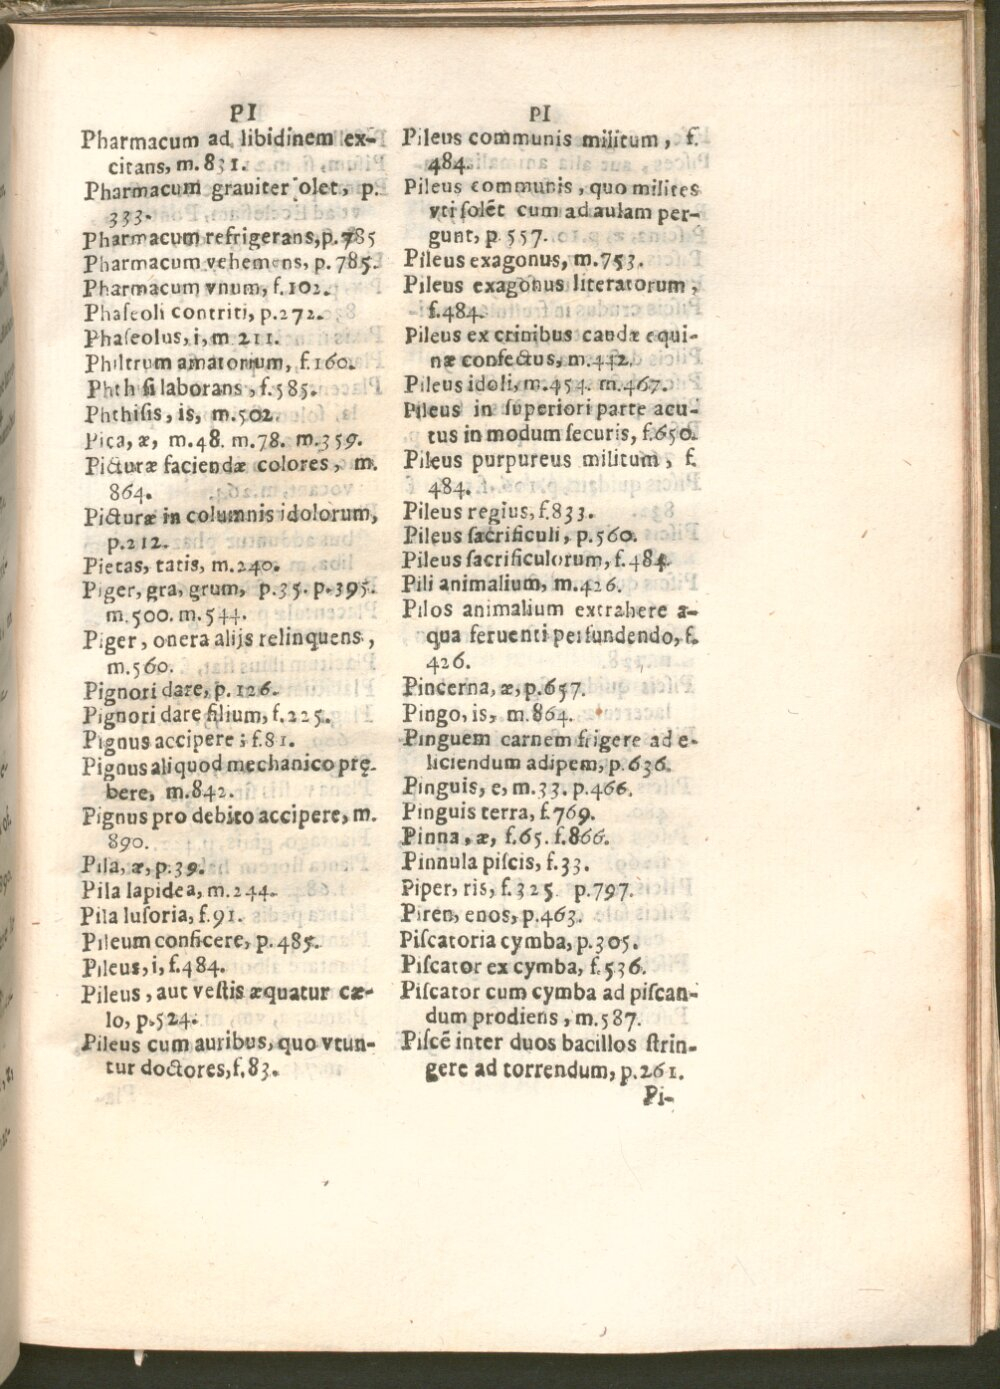 PI
Pharmacum ad libidinem ex-
citans, m.831.
Pharmacum grauiter olet, p.
333.
Pharmacum refrigerans, p.785
Pharmacum vehemens, p.785.
Pharmacum vnum, f.102.
Phaſeoli contriti, p.272.
Phaſeolus, i, m 211.
Philtrum amatorium, f.160.
Phth ſi laborans, f.585.
Phthiſis, is, m.502.
Pica, æ, m.48. m.78. m.359.
Picturæ faciendæ colores, m.
864.
Picturæ in columnis idolorum,
p.212.
Pietas, tatis, m.240.
Piger, gra, grum, p.35. p.395.
m.500. m.544.
Piger, onera alijs relinquens,
m.560.
Pignori dare, p.126.
Pignori dare filium, f.225.
Pignus accipere; f.81.
Pignus aliquod mechanico prę-
bere, m.842.
Pignus pro debito accipere, m.
890.
Pila, æ, p.39.
Pila lapidea, m.244.
Pila luſoria, f.91.
Pileum conficere, p.485.
Pileus, i, f.484.
Pileus, aut veſtis æquatur cæ-
lo, p.524.
Pileus cum auribus, quo vtun-
tur doctores, f.83.
PI
Pileus communis militum, f.
484.
Pileus communis, quo milites
vti ſolẽt cum ad aulam per-
gunt, p 557.
Pileus exagonus, m.753.
Pileus exagonus literatorum,
f.484.
Pileus ex crinibus caudæ equi-
næ confectus, m.442.
Pileus idoli, m.454. m.467.
Pileus in ſuperiori parte acu-
tus in modum ſecuris, f.650.
Pileus purpureus militum, f.
484.
Pileus regius, f.833.
Pileus ſacrificuli, p.560.
Pileus ſacrificulorum, f.484.
Pili animalium, m.426.
Pilos animalium extrahere a-
qua feruenti perfundendo, f.
426.
Pincerna, æ, p.657.
Pingo, is, m.864.
Pinguem carnem frigere ad e-
liciendum adipem, p.636.
Pinguis, e, m.33. p.466.
Pinguis terra, f.769.
Pinna, æ, f.65. f.866.
Pinnula piſcis, f.33.
Piper, ris, f.325 p.797.
Piren, enos, p.463.
Piſcatoria cymba, p.305.
Piſcator ex cymba, f.536.
Piſcator cum cymba ad piſcan-
dum prodiens, m.587.
Piſcẽ inter duos bacillos ſtrin-
gere ad torrendum, p.261.
Pi-